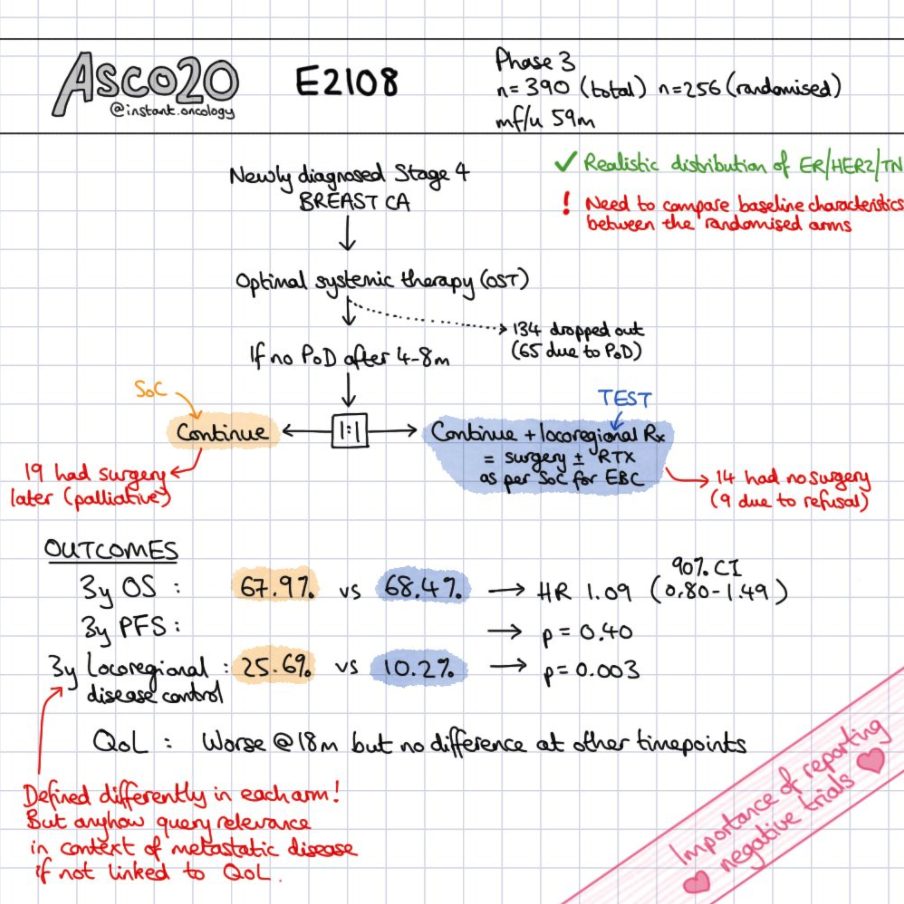 Asco20
@instant.oncology
E2108
Phase 3
n=390 (total) n=256 (randomised)
mf/u 59m
✓ Realistic distribution of ER/HER2/TN
! Need to compare baseline characteristics
between the randomised arms
Newly diagnosed Stage 4
BREAST CA
Optimal systemic therapy (OST)
134 dropped out
(65 due to PoD)
If no PoD after 4-8m
SoC
TEST
Continue
1:1
Continue + locoregional Rx
= surgery ± RTX
as per SoC for EBC
19 had surgery
later (palliative)
14 had no surgery
(9 due to refusal)
OUTCOMES
90% CI
3y OS : 67.9% vs 68.4% → HR 1.09 (0.80-1.49)
3y PFS : → p = 0.40
3y Locoregional : 25.6% vs 10.2% → p=0.003
disease control
QoL : Worse @18m but no difference at other timepoints
Defined differently in each arm!
But anyhow query relevance
in context of metastatic disease
if not linked to QoL.
Importance of reporting
negative trials